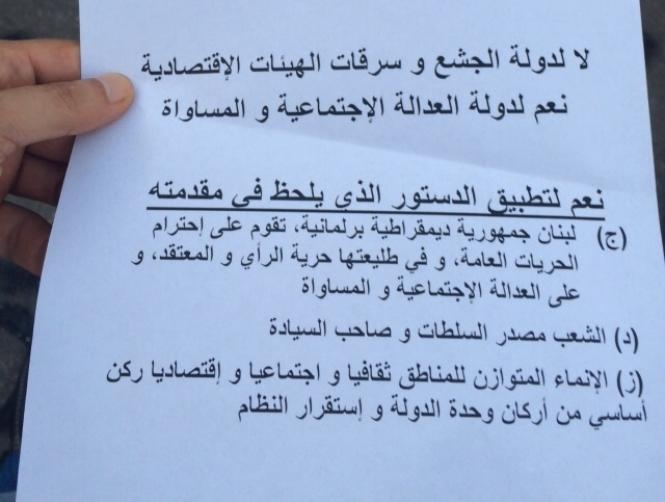 لا لدولة الجشع و سرقات الهيئات الإقتصادية
نعم لدولة العدالة الإجتماعية و المساواة
نعم لتطبيق الدستور الذي يلحظ في مقدمته
(ج) لبنان جمهورية ديمقراطية برلمانية، تقوم على إحترام
الحريات العامة، و في طليعتها حرية الرأي و المعتقد، و
على العدالة الإجتماعية و المساواة
(د) الشعب مصدر السلطات و صاحب السيادة
(ز) الإنماء المتوازن للمناطق ثقافيا و اجتماعيا و إقتصاديا ركن
أساسي من أركان وحدة الدولة و إستقرار النظام